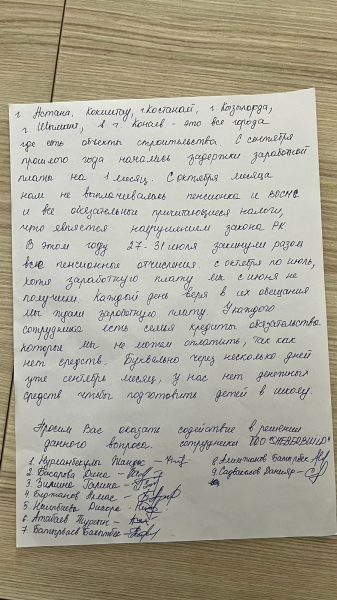 г. Астана, Кокшетау, г. Костанай, г. Кызылорда,
г. Шымкент, в г. Конаев - это все города
где есть объекты строительства. С сентября
прошлого года начались задержки заработной
платы на 1 месяц. С октября месяца
нам не выплачивалась пенсионка и ВОСМС
и все обязательные причитающиеся налоги,
что является нарушением закона РК
В этом году 27-31 июля закинули разом
все пенсионные отчисления с октября по июль,
хотя заработную плату мы с июня не
получили. Каждый день веря в их обещания
мы ждали заработную плату. У каждого
сотрудника есть семья кредиты обязательства
которые мы не можем оплатить, так как
нет средств. Буквально через несколько дней
уже сентябрь месяц, у нас нет денежных
средств чтобы подготовить детей в школу.
Просим Вас оказать содействие в решении
данного вопроса сотрудники ТОО
1.
2. Дина -
3. Зимина Галина -
4. Алмас -
5. Динара -
6.
7.
8.
9. Данияр -